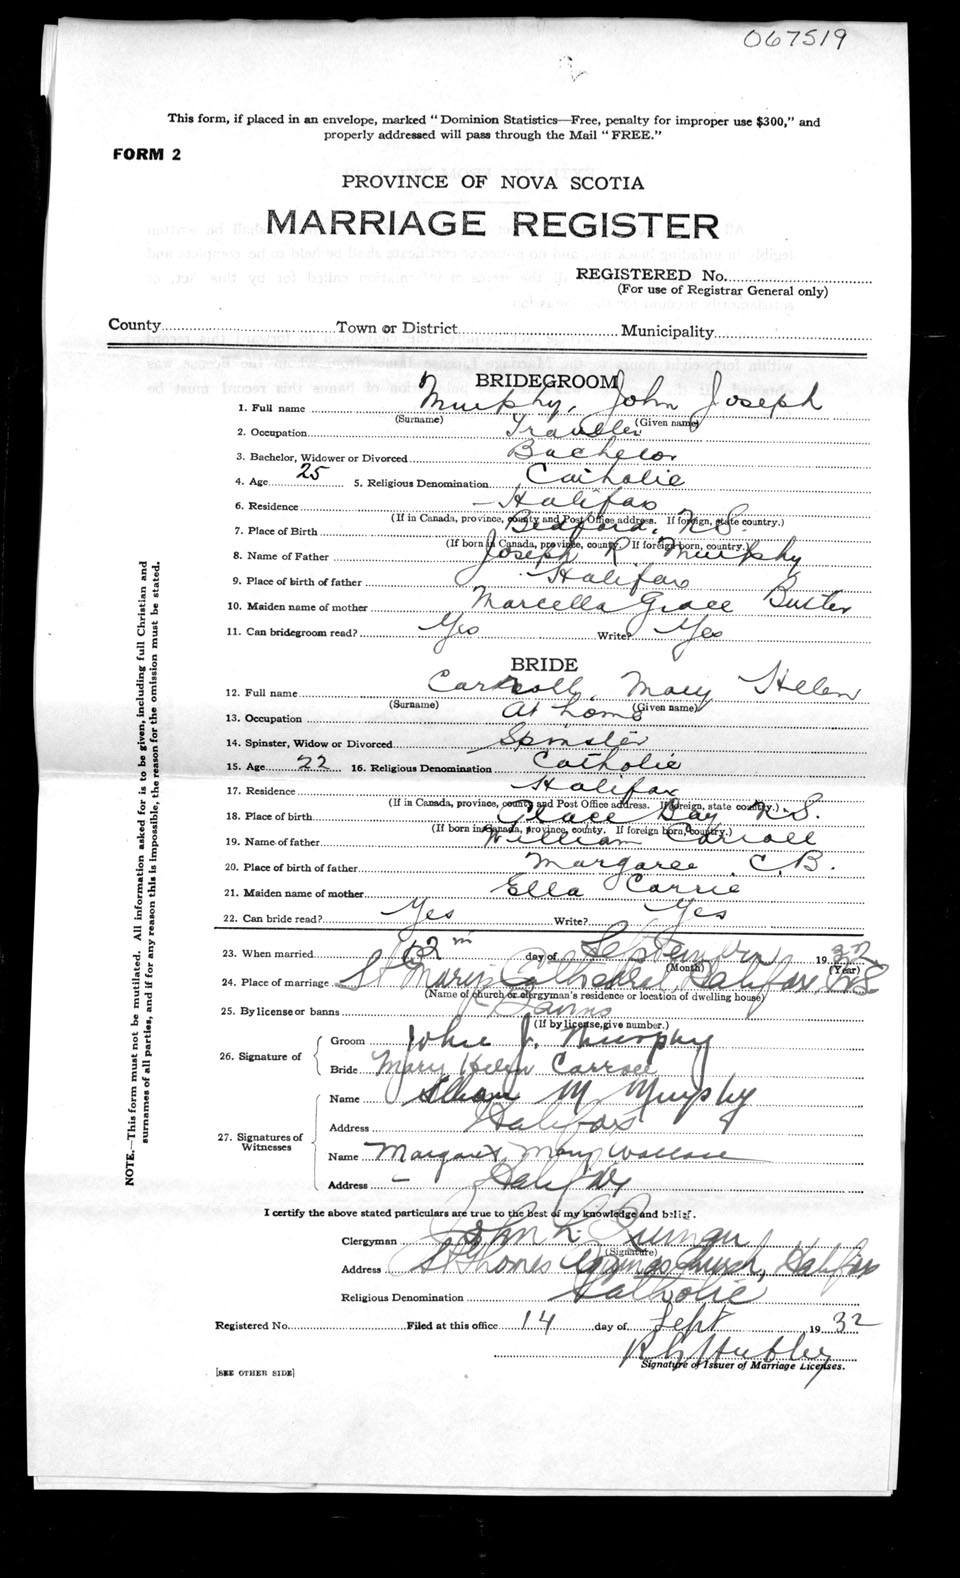 067519
This form, if placed in an envelope, marked "Dominion Statistics—Free, penalty for improper use $300," and
properly addressed will pass through the Mail "FREE."
FORM 2
PROVINCE OF NOVA SCOTIA
MARRIAGE REGISTER
REGISTERED No.
(For use of Registrar General only)
County Town or District Municipality
BRIDEGROOM
1. Full name Murphy, John Joseph
(Surname) (Given name)
2. Occupation Traveller
3. Bachelor, Widower or Divorced Bachelor
4. Age 25 5. Religious Denomination Catholic
6. Residence Halifax
(If in Canada, province, county and Post Office address. If foreign, state country.)
7. Place of Birth Bedford, N.S.
(If born in Canada, province, county. If foreign born, country.)
8. Name of Father Joseph R. Murphy
9. Place of birth of father Halifax
10. Maiden name of mother Marcella Grace Buxter
11. Can bridegroom read? Yes Write? Yes
BRIDE
12. Full name Carroll, Mary Helen
(Surname) (Given name)
13. Occupation At home
14. Spinster, Widow or Divorced Spinster
15. Age 22 16. Religious Denomination Catholic
17. Residence Halifax
(If in Canada, province, county and Post Office address. If foreign, state country.)
18. Place of birth Glace Bay N.S.
(If born in Canada, province, county. If foreign born, country.)
19. Name of father William Carroll
20. Place of birth of father Margaree C.B.
21. Maiden name of mother Ella Carrie
22. Can bride read? Yes Write? Yes
23. When married day of September 19 32
(Month) (Year)
24. Place of marriage St Mary's Cathedral, Halifax, N.S.
(Name of church or clergyman's residence or location of dwelling house)
25. By license or banns Banns
(If by license, give number.)
26. Signature of
Groom John J. Murphy
Bride Mary Helen Carroll
27. Signatures of
Witnesses
Name M Murphy
Address Halifax
Name Margaret Mary Wallace
Address Halifax
I certify the above stated particulars are true to the best of my knowledge and belief.
Clergyman John L. Quinan
(Signature)
Address St Church, Halifax
Religious Denomination Catholic
Registered No. Filed at this office 14 day of Sept 19 32
Signature of Issuer of Marriage Licenses.
[SEE OTHER SIDE]
NOTE.—This form must not be mutilated. All information asked for is to be given, including full Christian and
surnames of all parties, and if for any reason this is impossible, the reason for the omission must be stated.